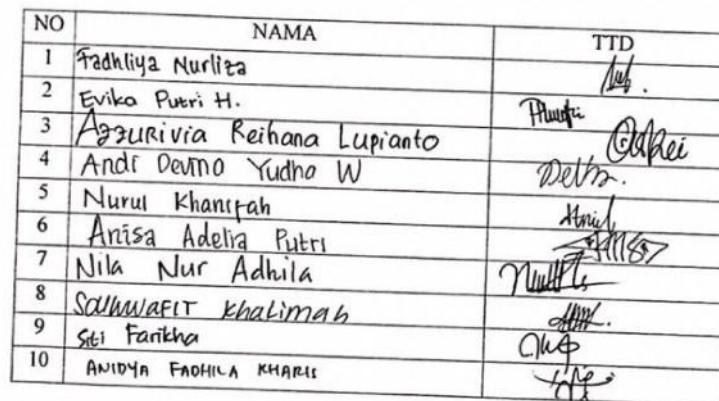 NO NAMA TTD
1 Fadhliya Nurliza
2 Evika Putri H.
3 Azzurivia Reihana Lupianto
4 Andi Devino Yudho W
5 Nurul Khanifah
6 Anisa Adelia Putri
7 Nila Nur Adhila
8 Khalimah
9 Siti Farikha
10 ANIDYA FADHILA KHARIS